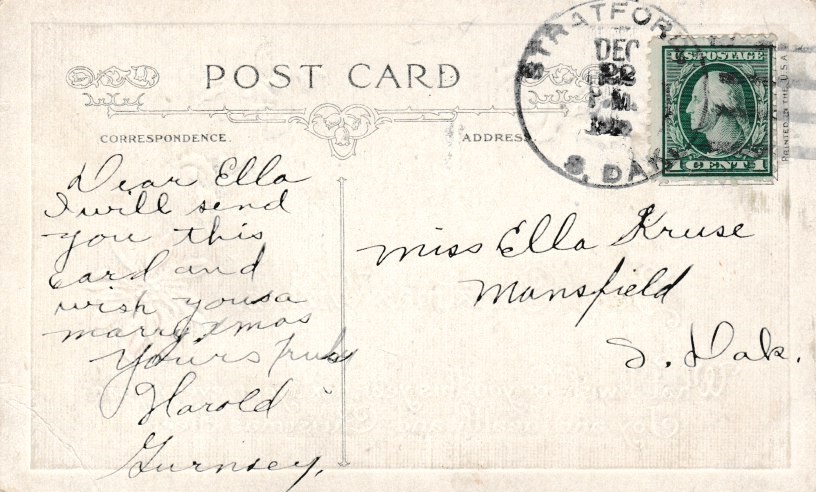 POST CARD
CORRESPONDENCE.
ADDRESS.
STRATFOR
DEC
22
P.M.
S. DAK
U.S. POSTAGE
1 CENT 1
PRINTED IN THE U.S.A.
Dear Ella
I will send
you this
card and
wish you a
marry xmas
Yours truly
Harold
Gurnsey.
Miss Ella Kruse
Mansfield
S. Dak.